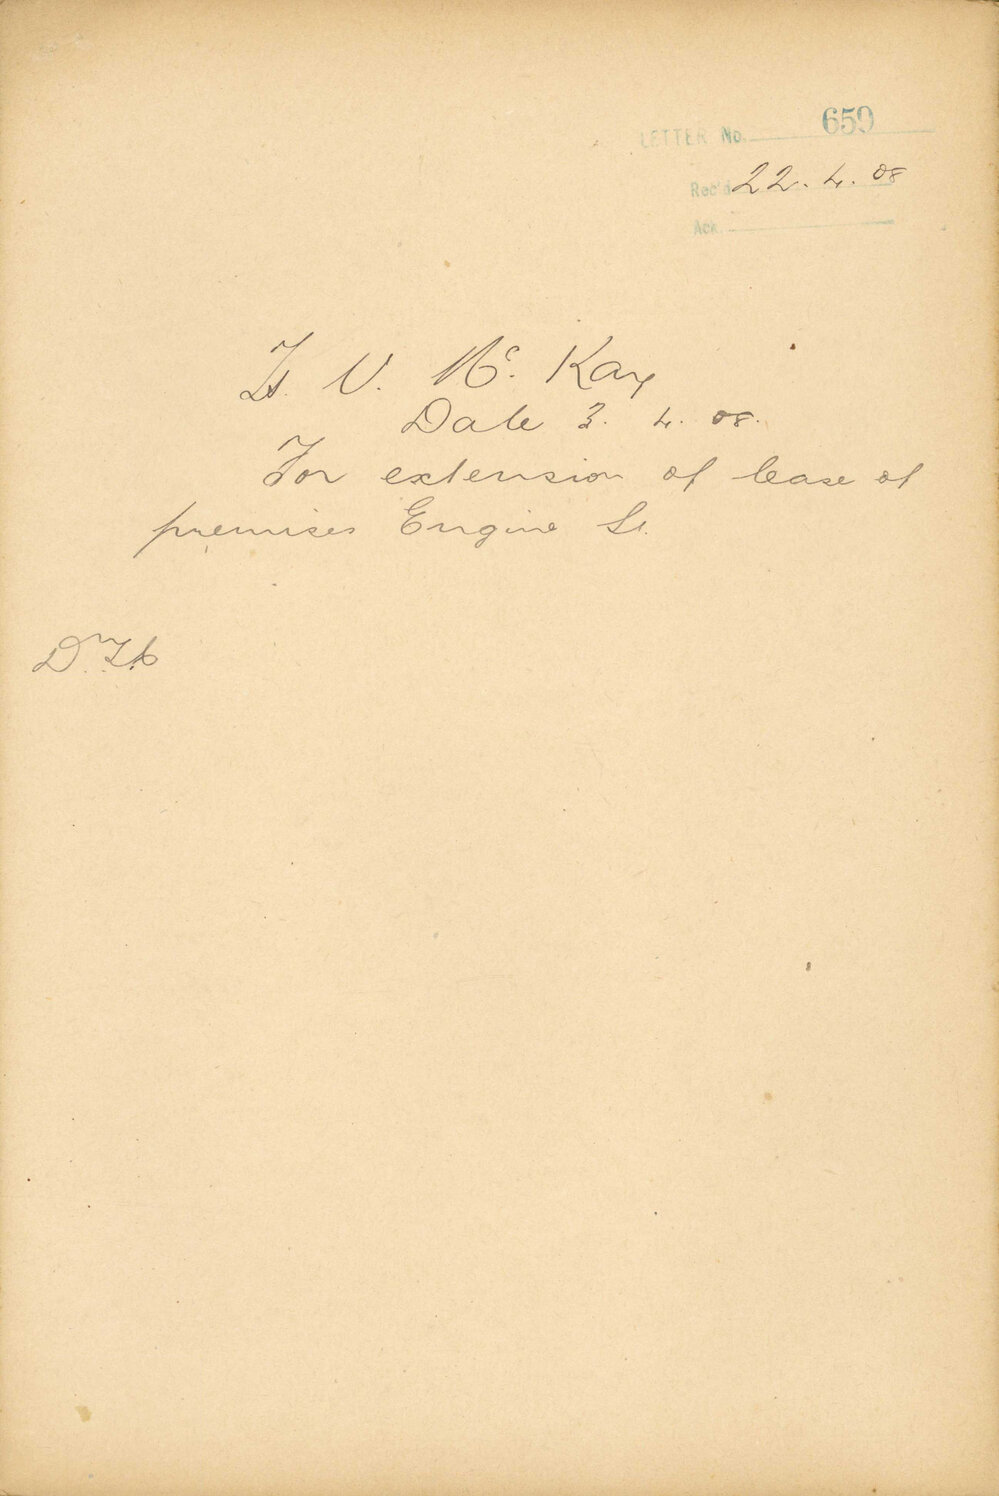 LETTER No. 659
Rec'd 22. 4. 08
Ack.
H. V. McKay
Date 3. 4. 08.
For extension of lease of
premises Engine St.